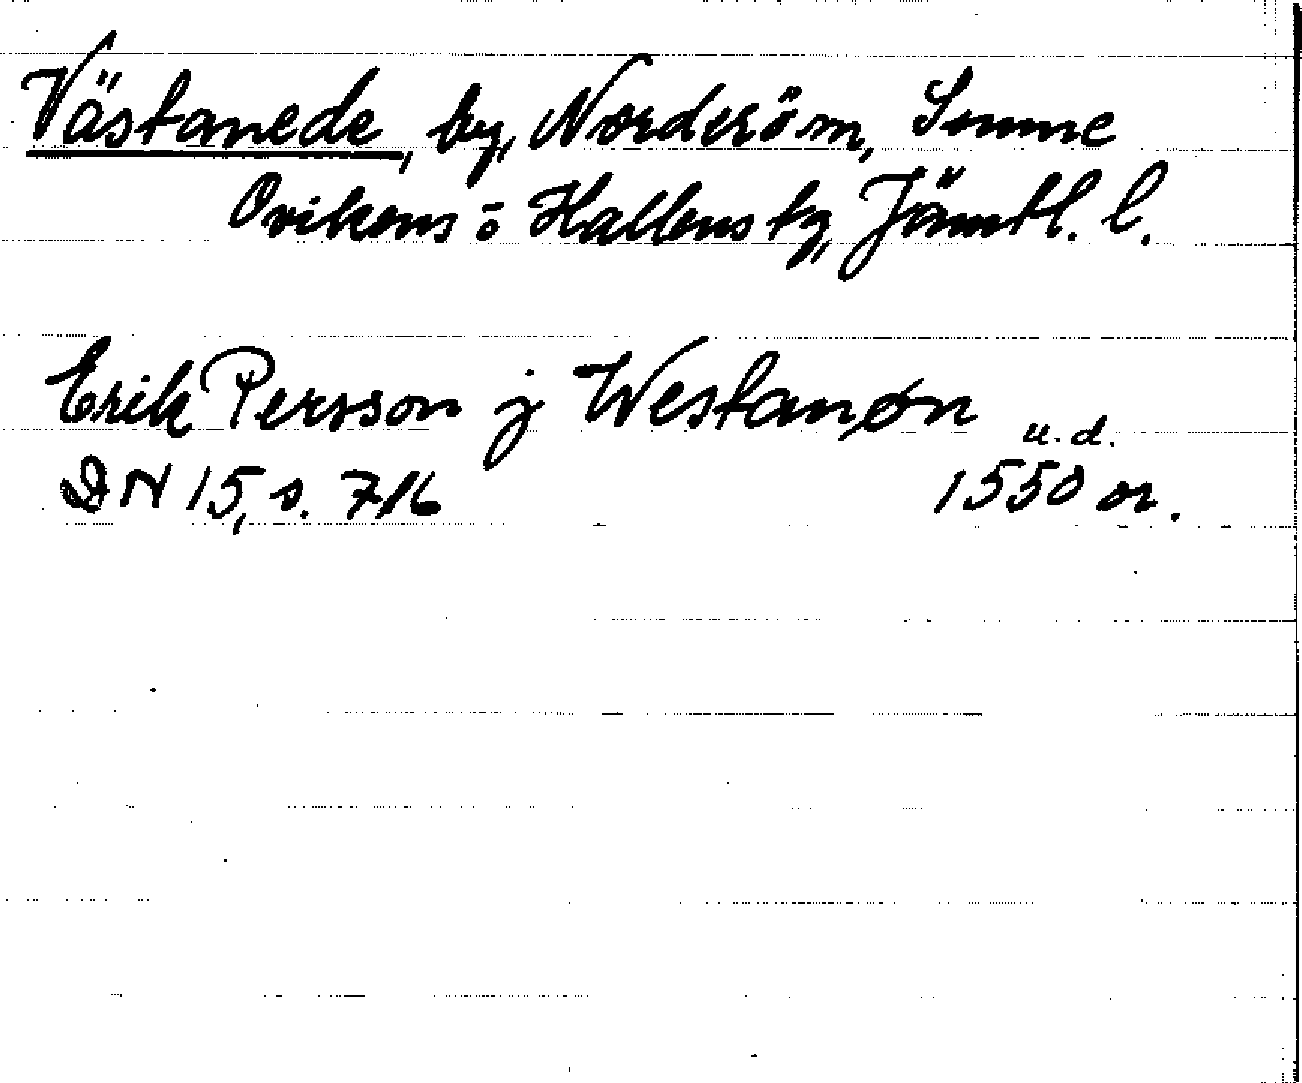 Västanede, by, Norderöm, Sunne
Ovikens o Hallens tg, Jämtl. l.
Erik Persson j Westanøn
u. d.
DN 15, s. 716 1550 or.